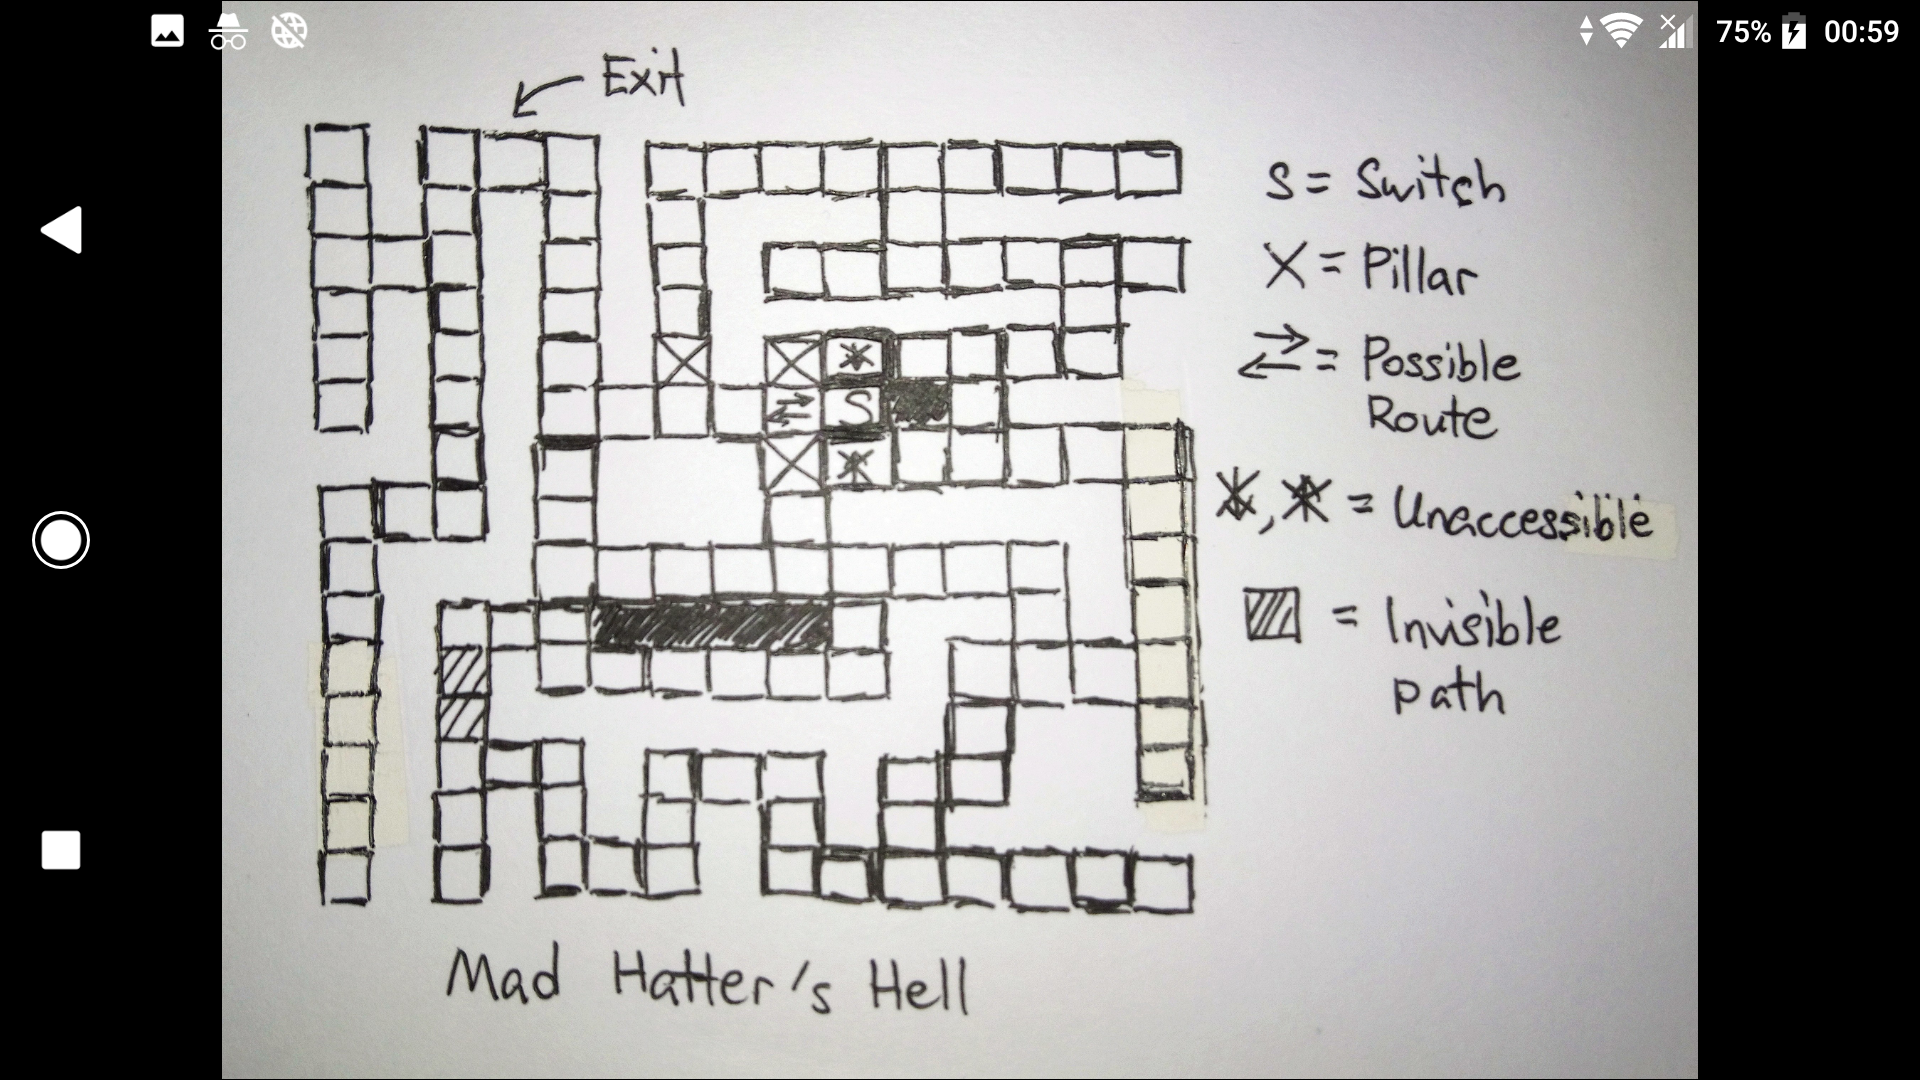 75% 00:59
Exit
S = Switch
X = Pillar
⇄ = Possible
Route
S
*, * = Unaccessible
= Invisible
path
Mad Hatter's Hell